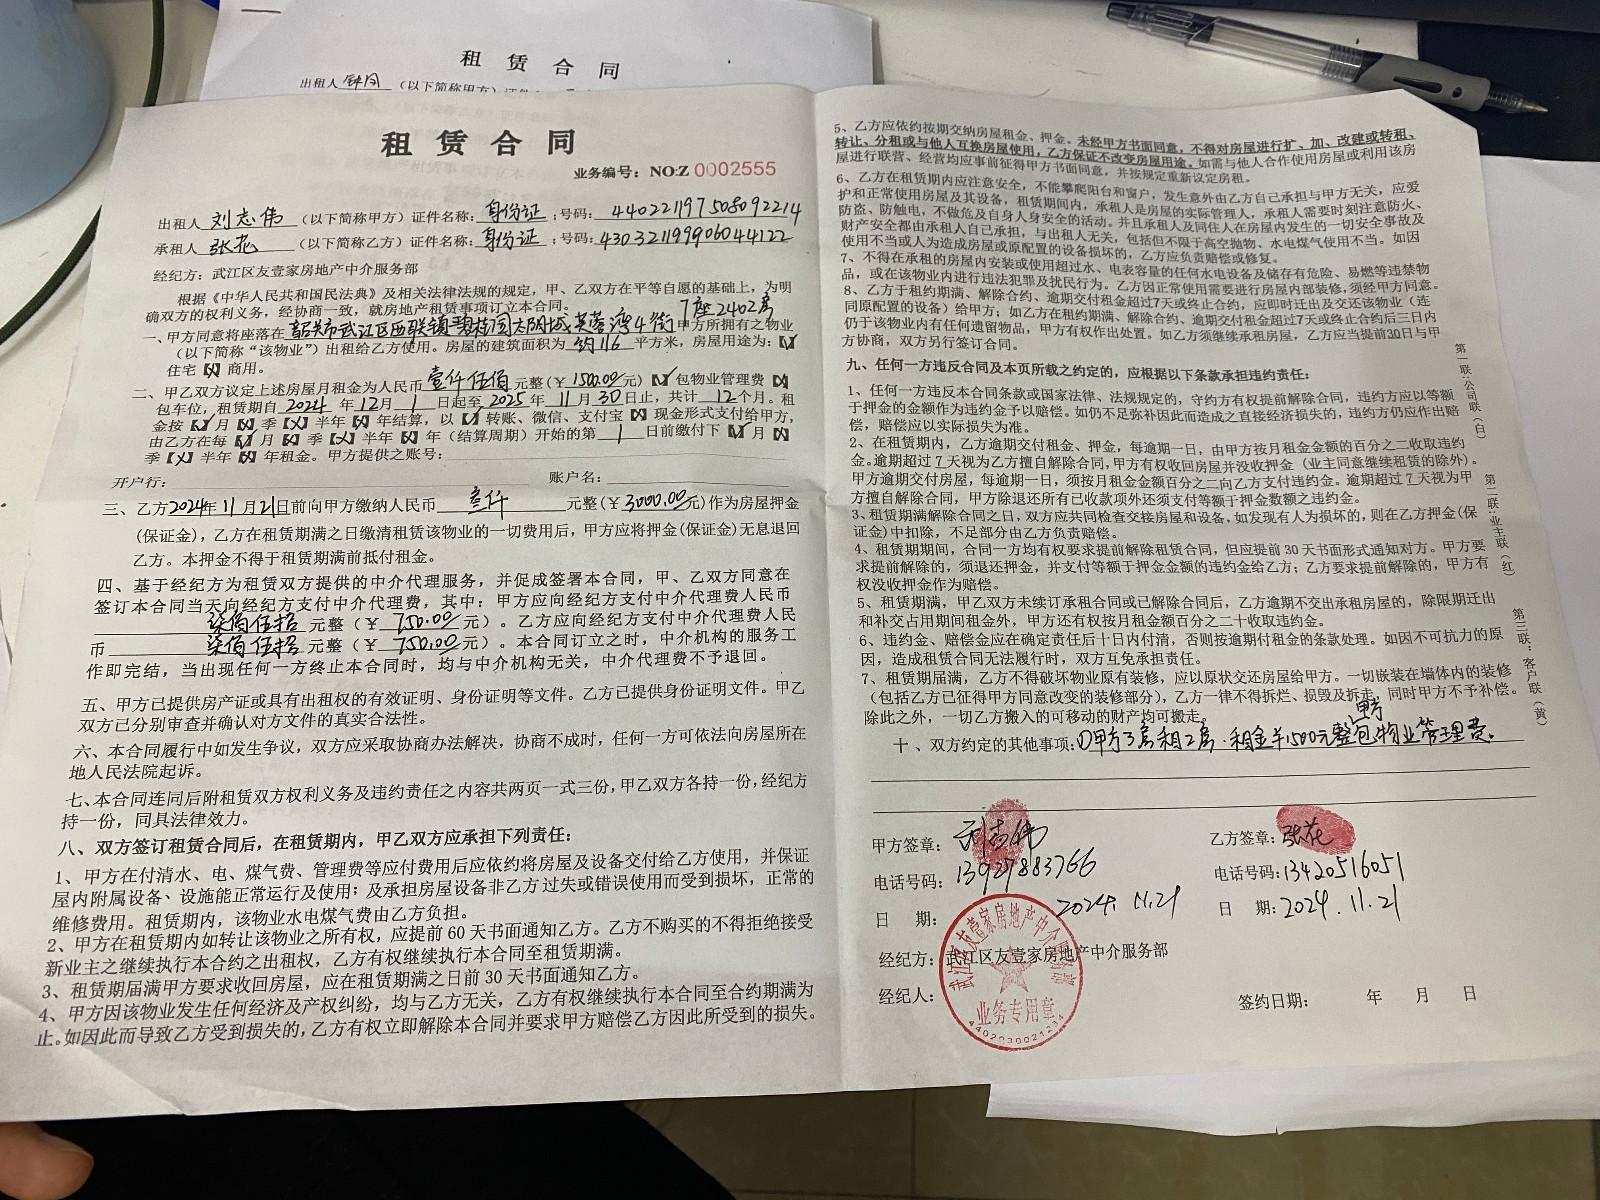 租赁合同
出租人 （以下简称甲方）证件
租赁合同
业务编号：NO:Z 0002555
出租人 刘志伟 （以下简称甲方）证件名称：身份证；号码：440221197508092214
承租人 张花 （以下简称乙方）证件名称：身份证；号码：430321199906044122
经纪方：武江区友壹家房地产中介服务部
根据《中华人民共和国民法典》及相关法律法规的规定，甲、乙双方在平等自愿的基础上，为明
确双方的权利义务，经协商一致，就房地产租赁事项订立本合同。
7座2402房
一、甲方同意将座落在韶关市武江区西联镇碧桂园太阳城芙蓉湾4街甲方所拥有之物业
（以下简称“该物业”）出租给乙方使用。房屋的建筑面积为 约116 平方米，房屋用途为：【✓】
住宅【×】商用。
二、甲乙双方议定上述房屋月租金为人民币 壹仟伍佰 元整（￥1500.00元）【✓】包物业管理费【×】
包车位，租赁期自 2024 年 12月 1 日起至 2025 年 11 月 30 日止，共计 12 个月。租
金按【✓】月【×】季【×】半年【×】年结算，以【✓】转账、微信、支付宝【×】现金形式支付给甲方，
由乙方在每【✓】月【×】季【×】半年【×】年（结算周期）开始的第 1 日前缴付下【✓】月【×】
季【×】半年【×】年租金。甲方提供之账号：
开户行： 账户名：
三、乙方2024年11月21日前向甲方缴纳人民币 叁仟 元整（￥3000.00元）作为房屋押金
(保证金)，乙方在租赁期满之日缴清租赁该物业的一切费用后，甲方应将押金(保证金)无息退回
乙方。本押金不得于租赁期满前抵付租金。
四、基于经纪方为租赁双方提供的中介代理服务，并促成签署本合同，甲、乙双方同意在
签订本合同当天向经纪方支付中介代理费，其中：甲方应向经纪方支付中介代理费人民币
柒佰伍拾 元整（￥ 750.00元）。乙方应向经纪方支付中介代理费人民
币 柒佰伍拾 元整（￥ 750.00元）。本合同订立之时，中介机构的服务工
作即完结，当出现任何一方终止本合同时，均与中介机构无关，中介代理费不予退回。
五、甲方已提供房产证或具有出租权的有效证明、身份证明等文件。乙方已提供身份证明文件。甲乙
双方已分别审查并确认对方文件的真实合法性。
六、本合同履行中如发生争议，双方应采取协商办法解决，协商不成时，任何一方可依法向房屋所在
地人民法院起诉。
七、本合同连同后附租赁双方权利义务及违约责任之内容共两页一式三份，甲乙双方各持一份，经纪方
持一份，同具法律效力。
八、双方签订租赁合同后，在租赁期内，甲乙双方应承担下列责任：
1、甲方在付清水、电、煤气费、管理费等应付费用后应依约将房屋及设备交付给乙方使用，并保证
屋内附属设备、设施能正常运行及使用；及承担房屋设备非乙方过失或错误使用而受到损坏，正常的
维修费用。租赁期内，该物业水电煤气费由乙方负担。
2、甲方在租赁期内如转让该物业之所有权，应提前 60 天书面通知乙方。乙方不购买的不得拒绝接受
新业主之继续执行本合约之出租权，乙方有权继续执行本合同至租赁期满。
3、租赁期届满甲方要求收回房屋，应在租赁期满之日前 30 天书面通知乙方。
4、甲方因该物业发生任何经济及产权纠纷，均与乙方无关，乙方有权继续执行本合同至合约期满为
止。如因此而导致乙方受到损失的，乙方有权立即解除本合同并要求甲方赔偿乙方因此所受到的损失。
5、乙方应依约按期交纳房屋租金、押金。未经甲方书面同意，不得对房屋进行扩、加、改建或转租、
转让、分租或与他人互换房屋使用，乙方保证不改变房屋用途。如需与他人合作使用房屋或利用该房
屋进行联营、经营均应事前征得甲方书面同意，并按规定重新议定房租。
6、乙方在租赁期内应注意安全，不能攀爬阳台和窗户，发生意外由乙方自己承担与甲方无关，应爱
护和正常使用房屋及其设备，租赁期间内，承租人是房屋的实际管理人，承租人需要时刻注意防火、
防盗、防触电，不做危及自身人身安全的活动。并且承租人及同住人在房屋内发生的一切安全事故及
财产安全都由承租人自己承担，与出租人无关，包括但不限于高空抛物、水电煤气使用不当。如因
使用不当或人为造成房屋或原配置的设备损坏的，乙方应负责赔偿或修复。
7、不得在承租的房屋内安装或使用超过水、电表容量的任何水电设备及储存有危险、易燃等违禁物
品，或在该物业内进行违法犯罪及扰民行为。乙方因正常使用需要进行房屋内部装修，须经甲方同意。
8、乙方于租约期满、解除合约、逾期交付租金超过7天或终止合约，应即时迁出及交还该物业（连
同原配置的设备）给甲方；如乙方在租约期满、解除合约、逾期交付租金超过7天或终止合约后三日内
仍于该物业内有任何遗留物品，甲方有权作出处置。如乙方须继续承租房屋，乙方应当提前30日与甲
方协商，双方另行签订合同。
九、任何一方违反合同及本页所载之约定的，应根据以下条款承担违约责任：
1、任何一方违反本合同条款或国家法律、法规规定的，守约方有权提前解除合同，违约方应以等额
于押金的金额作为违约金予以赔偿。如仍不足弥补因此而造成之直接经济损失的，违约方仍应作出赔
偿，赔偿应以实际损失为准。
2、在租赁期内，乙方逾期交付租金、押金，每逾期一日，由甲方按月租金金额的百分之二收取违约
金。逾期超过 7 天视为乙方擅自解除合同，甲方有权收回房屋并没收押金（业主同意继续租赁的除外）。
甲方逾期交付房屋，每逾期一日，须按月租金金额百分之二向乙方支付违约金。逾期超过 7 天视为甲
方擅自解除合同，甲方除退还所有已收款项外还须支付等额于押金数额之违约金。
3、租赁期满解除合同之日，双方应共同检查交接房屋和设备，如发现有人为损坏的，则在乙方押金(保
证金)中扣除，不足部分由乙方负责赔偿。
4、租赁期期间，合同一方均有权要求提前解除租赁合同，但应提前 30 天书面形式通知对方。甲方要
求提前解除的，须退还押金，并支付等额于押金金额的违约金给乙方；乙方要求提前解除的，甲方有
权没收押金作为赔偿。
5、租赁期满，甲乙双方未续订承租合同或已解除合同后，乙方逾期不交出承租房屋的，除限期迁出
和补交占用期间租金外，甲方还有权按月租金额百分之二十收取违约金。
6、违约金、赔偿金应在确定责任后十日内付清，否则按逾期付租金的条款处理。如因不可抗力的原
因，造成租赁合同无法履行时，双方互免承担责任。
7、租赁届满，乙方不得破坏物业原有装修，应以原状交还房屋给甲方。一切嵌装在墙体内的装修
（包括乙方已征得甲方同意改变的装修部分），乙方一律不得拆烂、损毁及拆走，同时甲方不予补偿。
除此之外，一切乙方搬入的可移动的财产均可搬走。
甲方
十、双方约定的其他事项：①甲方3房租2房·租金￥1500元整包物业管理费。
第一联：公司联（白）
第二联：业主联（红）
第三联：客户联（黄）
甲方签章：刘志伟 乙方签章：张花
电话号码：13927883766 电话号码：13420516051
日 期： 2024.11.21 日 期：2024.11.21
经纪方：武江区友壹家房地产中介服务部
经纪人： 签约日期： 年 月 日
武江区友壹家房地产中介服务部
业务专用章
4402030021234